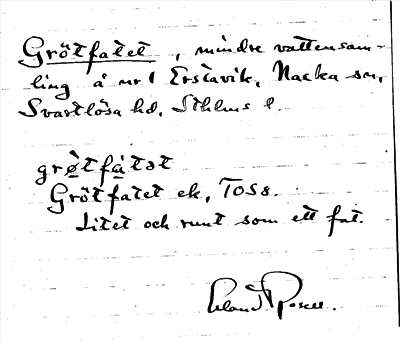 Grötfatet, mindre vattensam-
ling å nr 1 Erstavik, Nacka sn,
Svartlösa hd, Sthlms l.
grø̀tfà̱tət
Grötfatet ek, TOSS.
Litet och runt som ett fat.
Erland Rosell.